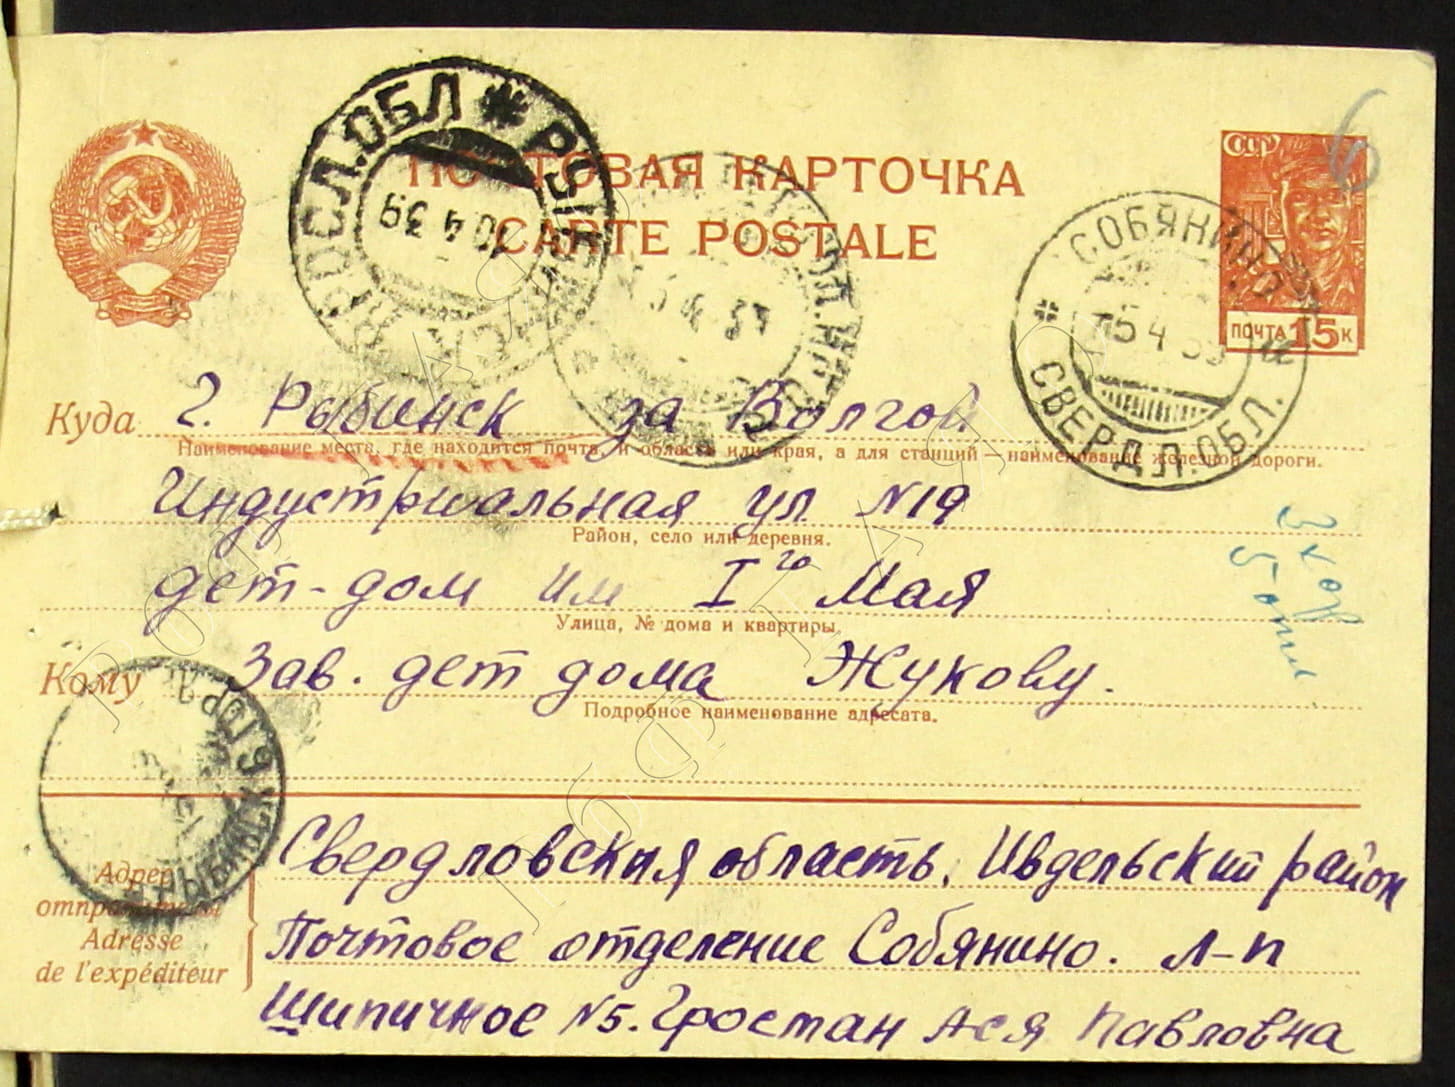 6
ЯРОСЛ.ОБЛ * РЫБИНСК
10 4 39
ПОЧТОВАЯ КАРТОЧКА
CARTE POSTALE
СССР
ПОЧТА 15 К
СОБЯНИНО
5 4 39
СВЕРДЛ.ОБЛ.
Куда г. Рыбинск за Волгой
Наименование места, где находится почта, и область или край, а для станций — наименование железной дороги.
Индустриальная ул №19
Район, село или деревня.
дет-дом им I го Мая
Улица, № дома и квартиры.
3 кор
5-отп
Кому Зав. дет дома Жукову.
Подробное наименование адресата.
Адрес отправителя
Adresse
de l'expéditeur
Свердловския область, Ивдельский район
Почтовое отделение Собянино. л-п
Шипичное №5. Гростан Ася Павловна